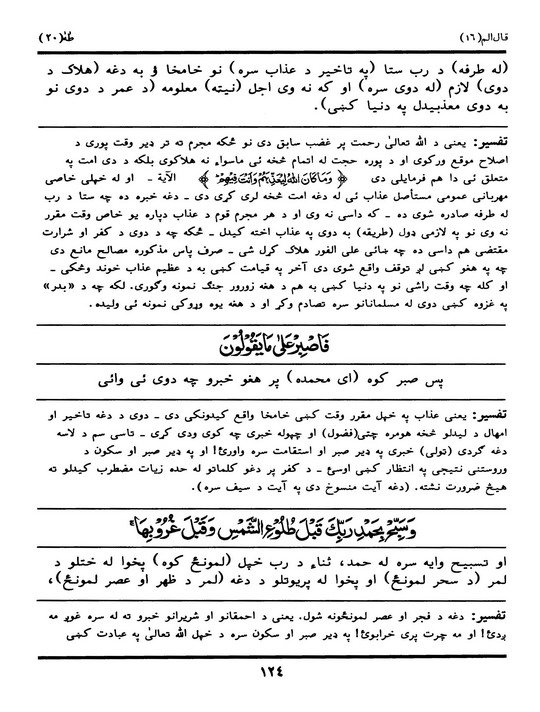 قال الم (١٦)
طٰهٰ (٢٠)
(له طرفه) د رب ستا (په تاخیر د عذاب سره) نو خامخا ؤ به دغه (هلاک د
دوی) لازم (له دوی سره) او که نه وی اجل (نیټه) معلومه (د عمر د دوی نو
به دوی معذبیدل په دنیا کښی).
تفسیر: یعنی د الله تعالیٰ رحمت پر غضب سابق دی نو ځکه مجرم ته تر ډیر وقت پوری د
اصلاح موقع ورکوی او د پوره حجت له اتمام څخه ئی ماسواء نه هلاکوی بلکه د دی امت په
متعلق ئی دا هم فرمایلی دی ﴿ وَمَا كَانَ اللهُ لِيُعَذِّبَهُمْ وَأَنْتَ فِيهِمْ ﴾ الآیة - او له خپلی خاصی
مهربانی عمومی مستأصل عذاب ئی له دغه امت څخه لری کړی دی - دغه خبره ده چه ستا د رب
له طرفه صادره شوی ده - که داسی نه وی او د هر مجرم قوم د عذاب دپاره یو خاص وقت مقرر
نه وی نو په لازمی ډول (طریقه) به دوی په عذاب اخته کیدل - ځکه چه د دوی د کفر او شرارت
مقتضی هم داسی ده چه ښائی علی الفور هلاک کړل شی - صرف پاس مذکوره مصالح مانع دی
چه په هغو کښی لږ توقف واقع شوی دی آخر په قیامت کښی به د عظیم عذاب خوند وڅکی -
او کله چه وقت راشی نو په دنیا کښی به هم د هغه زورور جنگ نمونه وګوری. لکه چه د «بدر»
په غزوه کښی دوی له مسلمانانو سره تصادم وکړ او د هغه یوه وړوکی نمونه ئی ولیده.
فَاصْبِرْ عَلٰى مَا يَقُوْلُوْنَ
پس صبر کوه (ای محمده) پر هغو خبرو چه دوی ئی وائی
تفسیر: یعنی عذاب په خپل مقرر وقت کښی خامخا واقع کیدونکی دی - دوی د دغه تاخیر او
امهال د لیدلو څخه هومره چتی(فضول) او چپوله خبری چه کوی ودی کړی - تاسی سم د لاسه
دغه ګردی (ټولی) خبری په ډیر صبر او استقامت سره واورئ! او په ډیر صبر او سکون د
وروستنی نتیجی په انتظار کښی اوسئ - د کفر پر دغو کلماتو له حده زیات مضطرب کیدلو ته
هیڅ ضرورت نشته. (دغه آیت منسوخ دی په آیت د سیف سره).
وَسَبِّحْ بِحَمْدِ رَبِّكَ قَبْلَ طُلُوْعِ الشَّمْسِ وَقَبْلَ غُرُوْبِهَا
او تسبیح وایه سره له حمد، ثناء د رب خپل (لمونځ کوه) پخوا له ختلو د
لمر (د سحر لمونځ) او پخوا له پریوتلو د دغه (لمر د ظهر او عصر لمونځ)،
تفسیر: دغه د فجر او عصر لمونځونه شول. یعنی د احمقانو او شریرانو خبرو ته له سره غوږ مه
ږدئ! او مه چرت پری خرابوئ! په ډیر صبر او سکون سره د خپل الله تعالیٰ په عبادت کښی
١٢٤